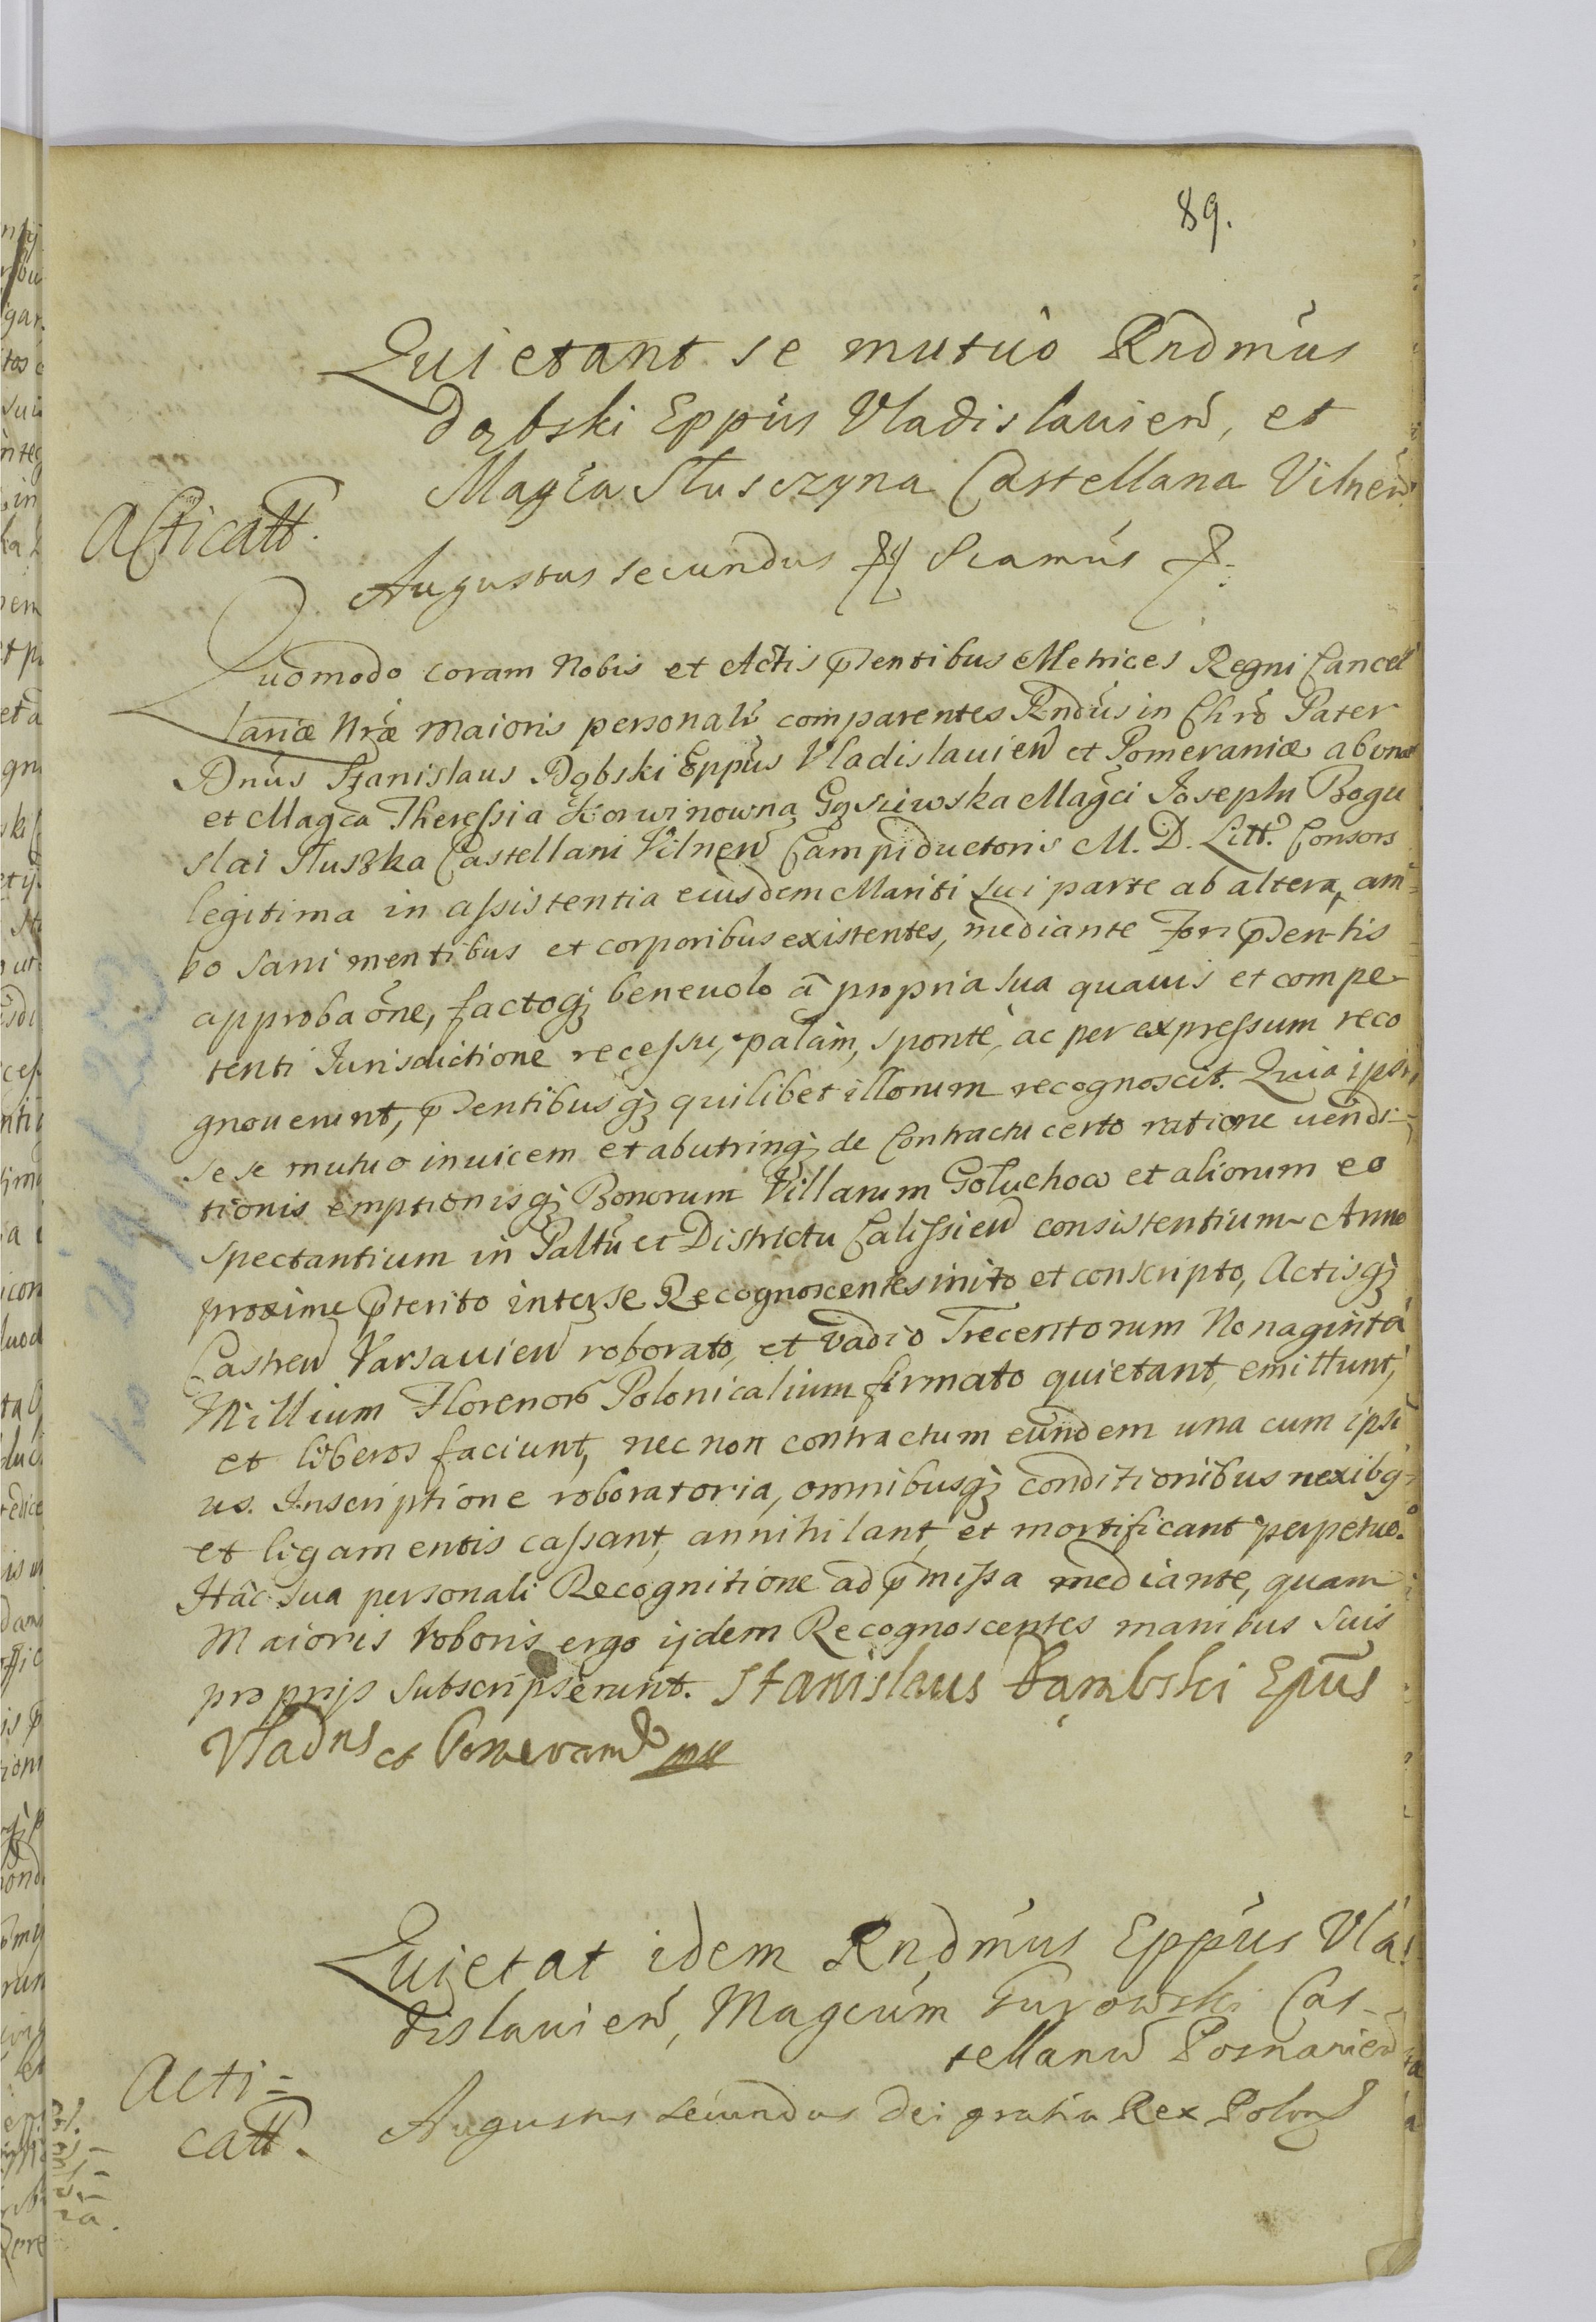 89.
Quietant se mutuò Rndmus
Dąbski Eppus Vladislauien, et
Magca Słusczyna Castellana Vilnen
Acticatt.
Augustus secundus &c Sramus &.
Quomodo coram Nobis et Actis pntibus Metrices Regni Cancel
lariæ Nræ Maioris personalr comparentes Rndus in Chro Pater
Dnus Stanislaus Dąbski Eppus Vladislauien et Pomeraniæ ab una
et Magca Theressia Korwinowna Gąsiewska Magci Josephi Bogu
slai Słuszka Castellani Vilnen Campiductoris M. D. Litt. Consors
legitima in assistentia eiusdem Mariti sui parte ab altera, am=
bo sani mentibus et corporibus existentes, mediante Fori pntis
approbaone, factoq; benevolo à propria sua quavis et compe
tenti Jurisdictione recessu, palàm, spontè, ac per expressum reco
gnoverunt, pntibusq; quilibet illorum recognoscit. Quia ipsi
sese mutuo invicem et ab utrinq; de Contractu certo ratione vendi=
tionis emptionisq; Bonorum Villarum Goluchow et aliorum eo
spectantium in Palttu et Districtu Calissien consistentium Anno
proxime pterito inter se Recognoscentes inito et conscripto, Actisq;
Castren Varsauien roborato, et vadio Trecentorum Nonaginta
Millium Florenor Polonicalium firmato quietant, emittunt,
et liberos faciunt, nec non contractum eundem una cum ipsi
us. Inscriptione roboratoria, omnibusq; conditionibus nexibq
et ligamentis cassant, annihilant, et mortificant perpetuo.
Hâc sua personali Recognitione ad pmissa mediante, quam
Maioris roboris ergo ijdem Recognoscentes manibus suis
proprijs subscripserunt. Stanislaus Dambski Epus
Vladns et Pomeran mp
Quietat idem Rndmus Eppus Vla
dislauien, Magcum Gurowski Cas-
tellanu Posnanien
Acti=
catt.
Augustus secundus Dei gratia Rex Polon